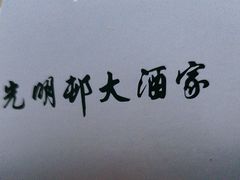 光明邨大酒家